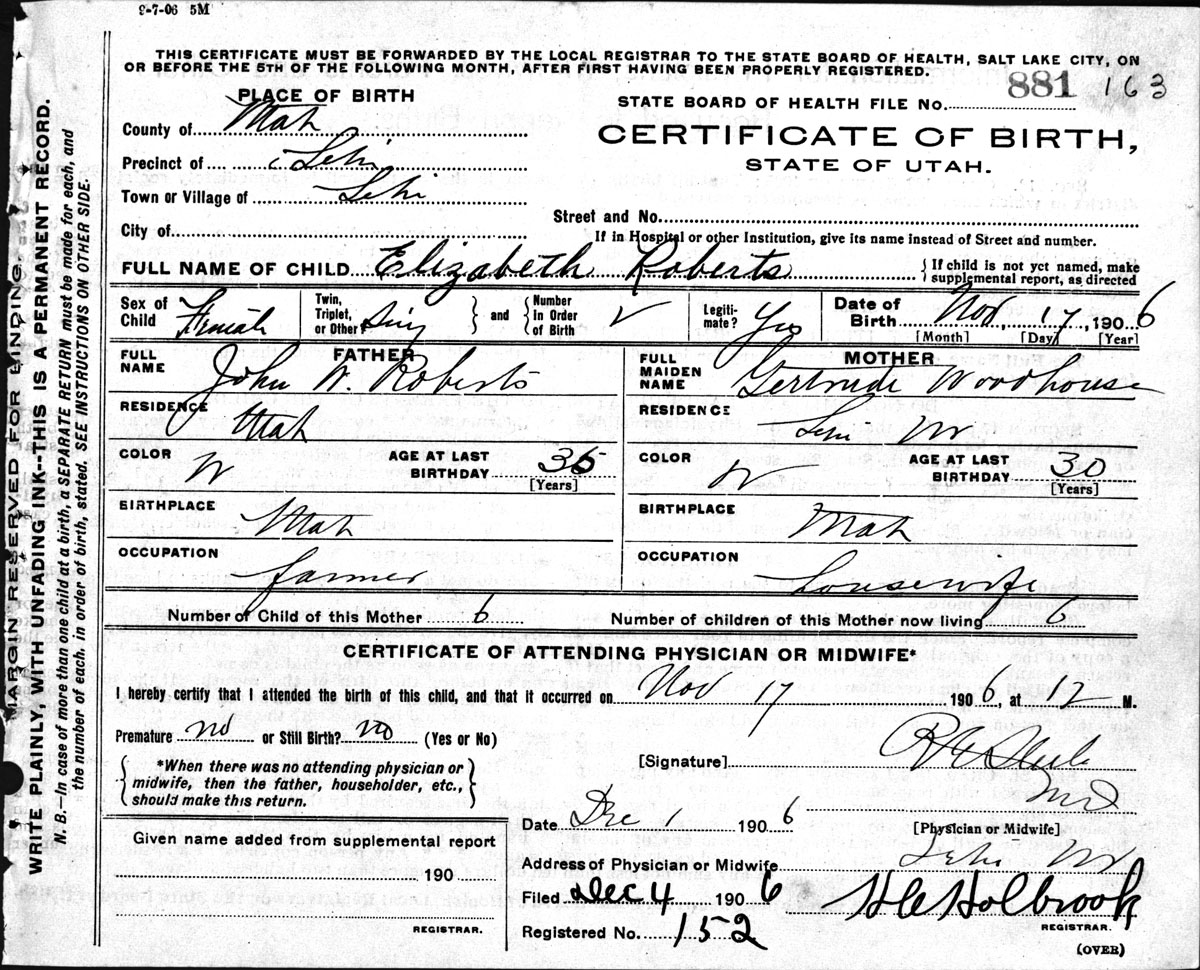 9-7-06 5M
THIS CERTIFICATE MUST BE FORWARDED BY THE LOCAL REGISTRAR TO THE STATE BOARD OF HEALTH, SALT LAKE CITY, ON
OR BEFORE THE 5TH OF THE FOLLOWING MONTH, AFTER FIRST HAVING BEEN PROPERLY REGISTERED.
MARGIN RESERVED FOR BINDING.
WRITE PLAINLY, WITH UNFADING INK--THIS IS A PERMANENT RECORD.
N. B.—In case of more than one child at a birth, a SEPARATE RETURN must be made for each, and
the number of each, in order of birth, stated. SEE INSTRUCTIONS ON OTHER SIDE.
PLACE OF BIRTH
STATE BOARD OF HEALTH FILE No. 881 163
County of Utah
CERTIFICATE OF BIRTH,
Precinct of Lehi
STATE OF UTAH.
Town or Village of Lehi
Street and No.
City of
If in Hospital or other Institution, give its name instead of Street and number.
FULL NAME OF CHILD Elizabeth Roberts { If child is not yet named, make
supplemental report, as directed
Sex of Child Female Twin, Triplet, or Other? Sing } and { Number In Order of Birth Legiti-mate? Yes Date of Birth Nov, 17, 1906
[Month] [Day] [Year]
FATHER
FULL NAME John W. Roberts
MOTHER
FULL MAIDEN NAME Gertrude Woodhouse
RESIDENCE Utah
RESIDENCE Lehi
COLOR W AGE AT LAST BIRTHDAY 35 [Years]
COLOR W AGE AT LAST BIRTHDAY 30 [Years]
BIRTHPLACE Utah
BIRTHPLACE Utah
OCCUPATION farmer
OCCUPATION housewife
Number of Child of this Mother 6 Number of children of this Mother now living 6
CERTIFICATE OF ATTENDING PHYSICIAN OR MIDWIFE*
I hereby certify that I attended the birth of this child, and that it occurred on Nov 17 1906, at 12 M.
Premature no or Still Birth? no (Yes or No)
[Signature]
{ *When there was no attending physician or
midwife, then the father, householder, etc.,
should make this return. }
MD
Date Dec 1 1906
[Physician or Midwife]
Given name added from supplemental report
Address of Physician or Midwife Lehi
190
Filed Dec 4 1906 H C Holbrook
REGISTRAR.
REGISTRAR.
Registered No. 152
(OVER)